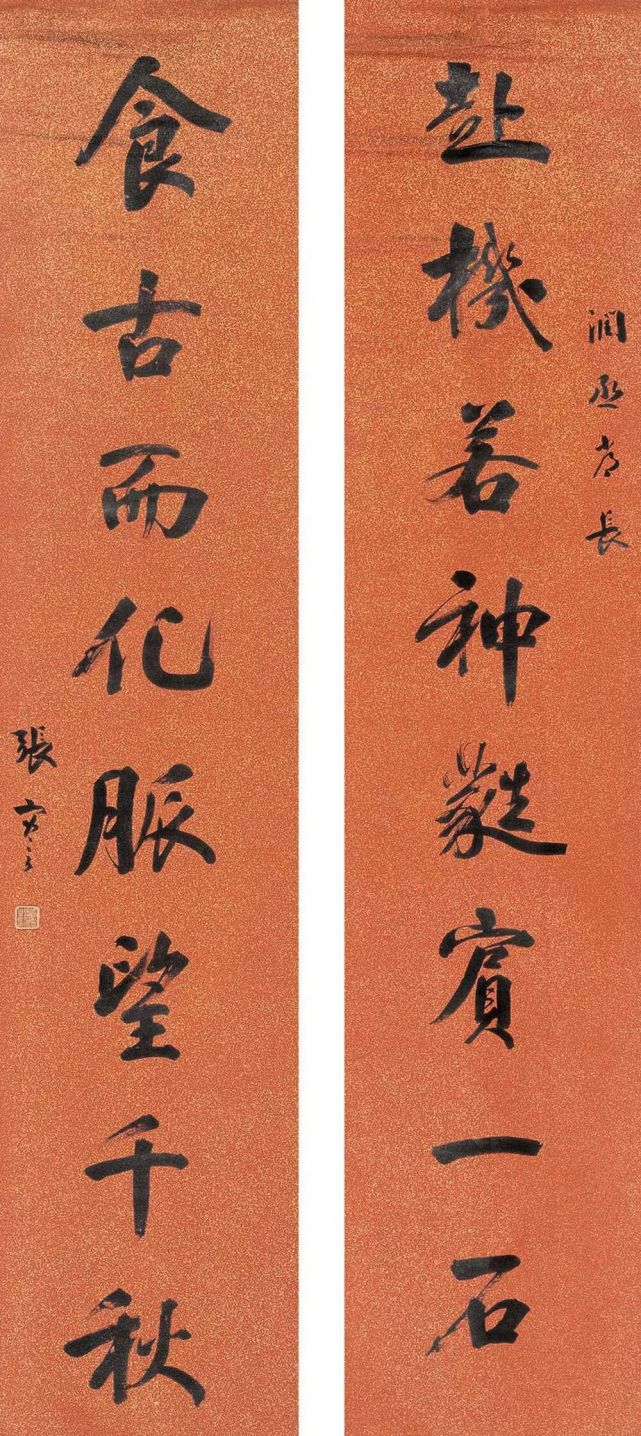 潤丞 長
赴機若神蕤賓一石
食古而化脈望千秋
張